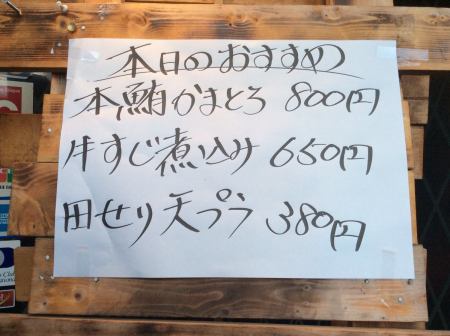 本日のおすすめ
本鮪かまとろ 800円
牛すじ煮込み 650円
田せり天プラ 380円